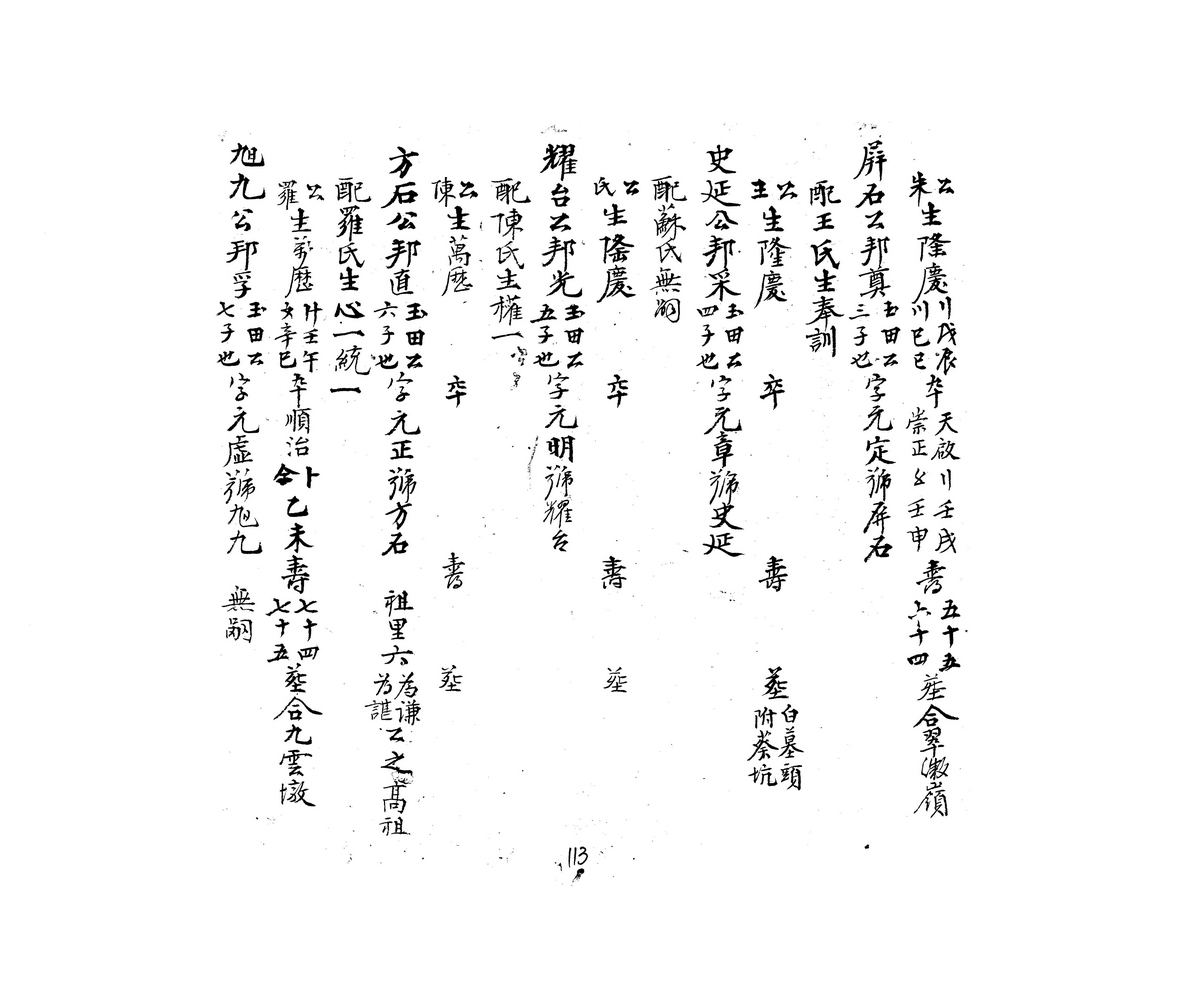 公朱生隆慶〢戊辰〢巳巳卒天啟〢壬戌崇正〥壬申壽五十五六十四葬合翠微嶺
屏石公邦奠玉田公三子也字元定號屏石
配王氏生奉訓
公王生隆慶 卒 壽 葬白墓頭附蔡坑
史延公邦采玉田公四子也字元章號史延
配蘇氏無嗣
公氏生隆慶 卒 壽 葬
耀台公邦光玉田公五子也字元明號耀台
配陳氏生權一
公陳生萬歷 卒 壽 葬
方石公邦直玉田公六子也字元正號方石 祖里六為謙為諶公之高祖
配羅氏生心一統一
公羅生萬歷 壬午 辛巳卒順治 乙未壽七十四七十五葬合九雲墩
旭九公邦孚玉田公七子也字元虛號旭九 無嗣
113